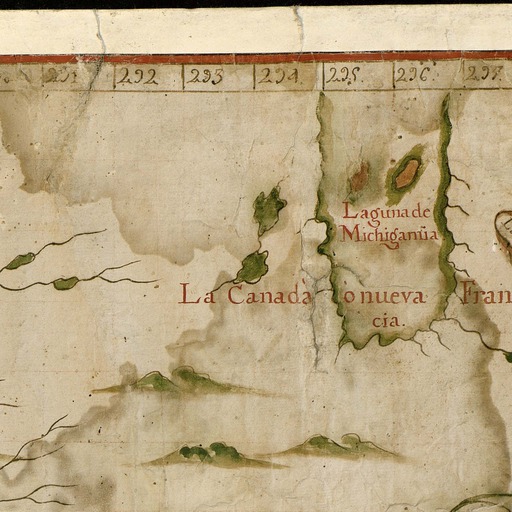 231 232 233 234 235 236 237
Laguna de
Michiganũa
La Canadà ò nueva Fran
cia.